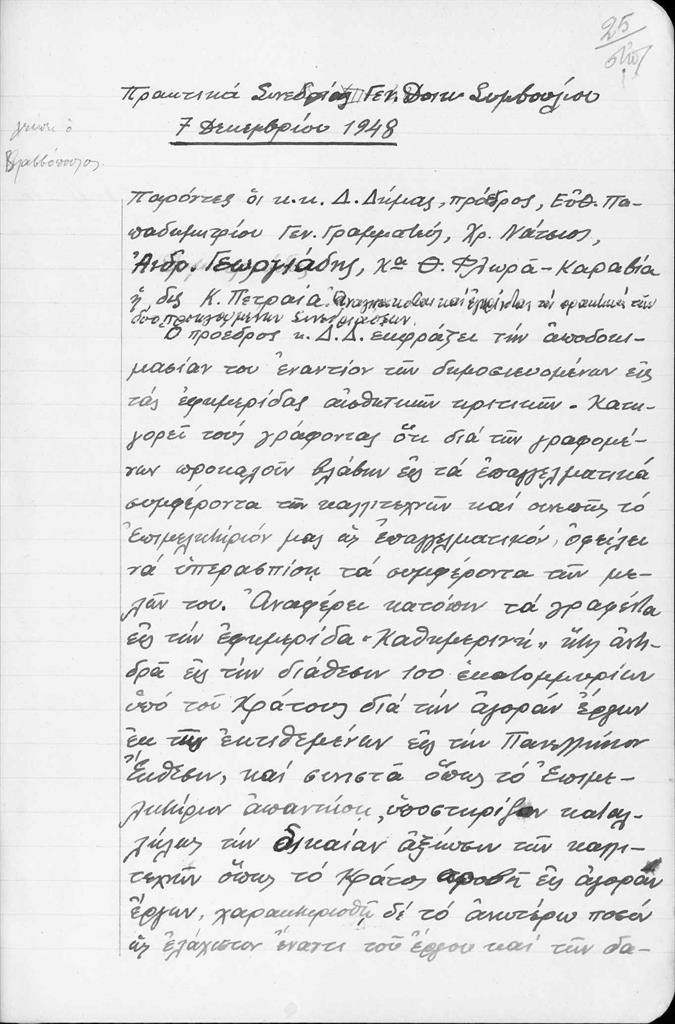 25
Πρακτικά Συνεδρίας Γεν. Διοικ Συμβουλίου
7 Δεκεμβρίου 1948
Παρόντες οἱ κ.κ. Δ. Δήμας, πρόεδρος, Εὐθ. Πα-
παδημητρίου Γεν. Γραμματεύς, Χρ. Νάτσιος,
Ἀνδρ. Γεωργιάδης, κα Θ. Φλωρᾶ-Καραβία
ἡ δις Κ. Πετραία. Ἀναγινώσκονται καί ἐγκρίνονται τά πρακτικά τῶν
δύο προηγουμένων συνεδριάσεων.
Ὁ πρόεδρος κ. Δ.Δ. ἐκφράζει τήν ἀποδοκι-
μασίαν του ἐναντίον τῶν δημοσιευομένων εἰς
τάς ἐφημερίδας αἰσθητικῶν κριτικῶν. Κατη-
γορεῖ τούς γράφοντας ὅτι διά τῶν γραφομέ-
νων προκαλοῦν βλάβην εἰς τά ἐπαγγελματικά
συμφέροντα τῶν καλλιτεχνῶν καί συνεπῶς τό
Ἐπιμελητήριόν μας ὡς ἐπαγγελματικόν, ὀφείλει
νά ὑπερασπίσῃ τά συμφέροντα τῶν με-
λῶν του. Ἀναφέρει κατόπιν τά γραφέντα
εἰς τήν ἐφημερίδα "Καθημερινή" ἥτις ἀντι-
δρᾶ εἰς τήν διάθεσιν 100 ἑκατομμυρίων
ὑπό τοῦ Κράτους διά τήν ἀγοράν ἔργων
ἐκ τῶν ἐκτιθεμένων εἰς τήν Πανελλήνιον
Ἔκθεσιν, καί συνιστᾶ ὅπως τό Ἐπιμε-
λητήριον ἀπαντήσῃ, ὑποστηρίζον καταλ-
λήλως τήν δικαίαν ἀξίωσιν τῶν καλλι-
τεχνῶν ὅπως τό Κράτος προβῇ εἰς ἀγοράν
ἔργων, χαρακτηρισθῇ δέ τό ἀνωτέρω ποσόν
ὡς ἐλάχιστον ἔναντι τοῦ ἔργου καί τῶν δα-